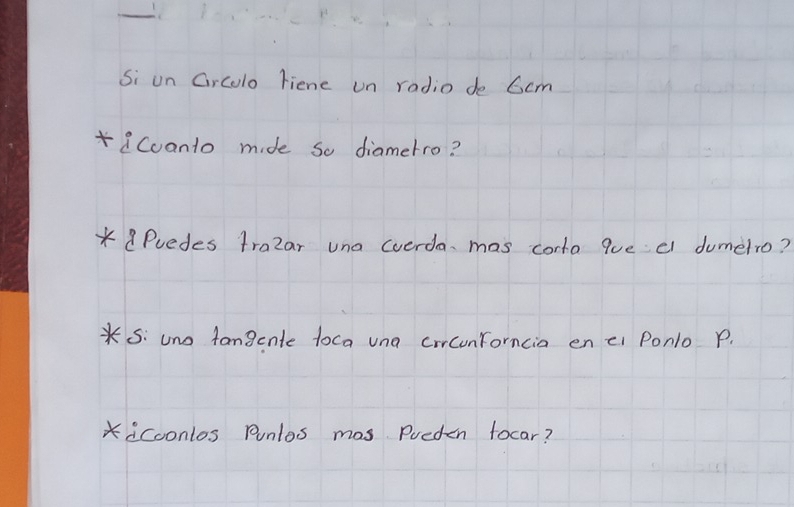 Si un Circulo tiene un radio de 6cm
* ¿Cuanto mide su diametro?
* ¿Puedes trazar una cuerda mas corta que el dumetro?
* Si una tangente toca una circunforncia en el Ponto P.
* ¿Cuontos Puntos mas Pueden tocar?